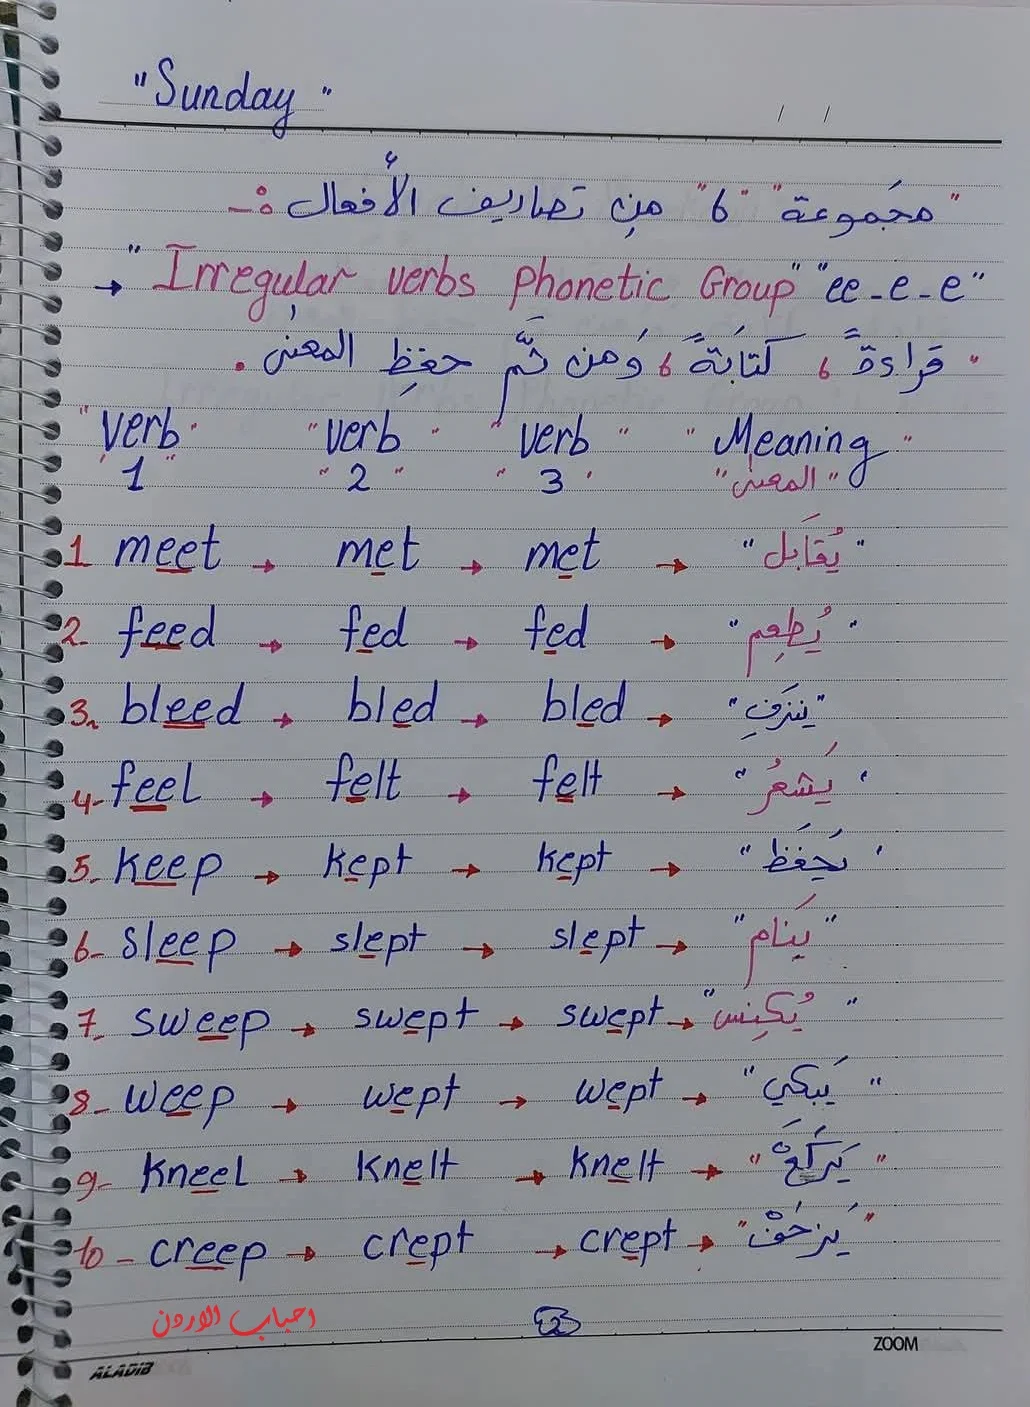 "Sunday"
/ /
"مَجموعة" "6" مِن تصاريف الأفعال :-
→ "Irregular verbs Phonetic Group" "ee - e - e"
"قراءةً، كتابَةً، وَمن ثَمَّ حفِظِ المعنى.
"Verb" "verb" "verb" "Meaning"
"1" "2" "3" "المعنى"
1 meet → met → met → "يُقابَل"
2- feed → fed → fed → "يُطعِم"
3. bleed → bled → bled → "ينزَفِ"
4- feel → felt → felt → "يَشعرُ"
5- keep → kept → kept → "يَحفَظ"
6- sleep → slept → slept → "يَنام"
7- sweep → swept → swept → "يُكنِس"
8- weep → wept → wept → "يَبكي"
9- kneel → knelt → knelt → "يَركَعَْ"
10 - creep → crept → crept → "يَزحَفْ"
احباب الاردن
2
ALADIB
ZOOM